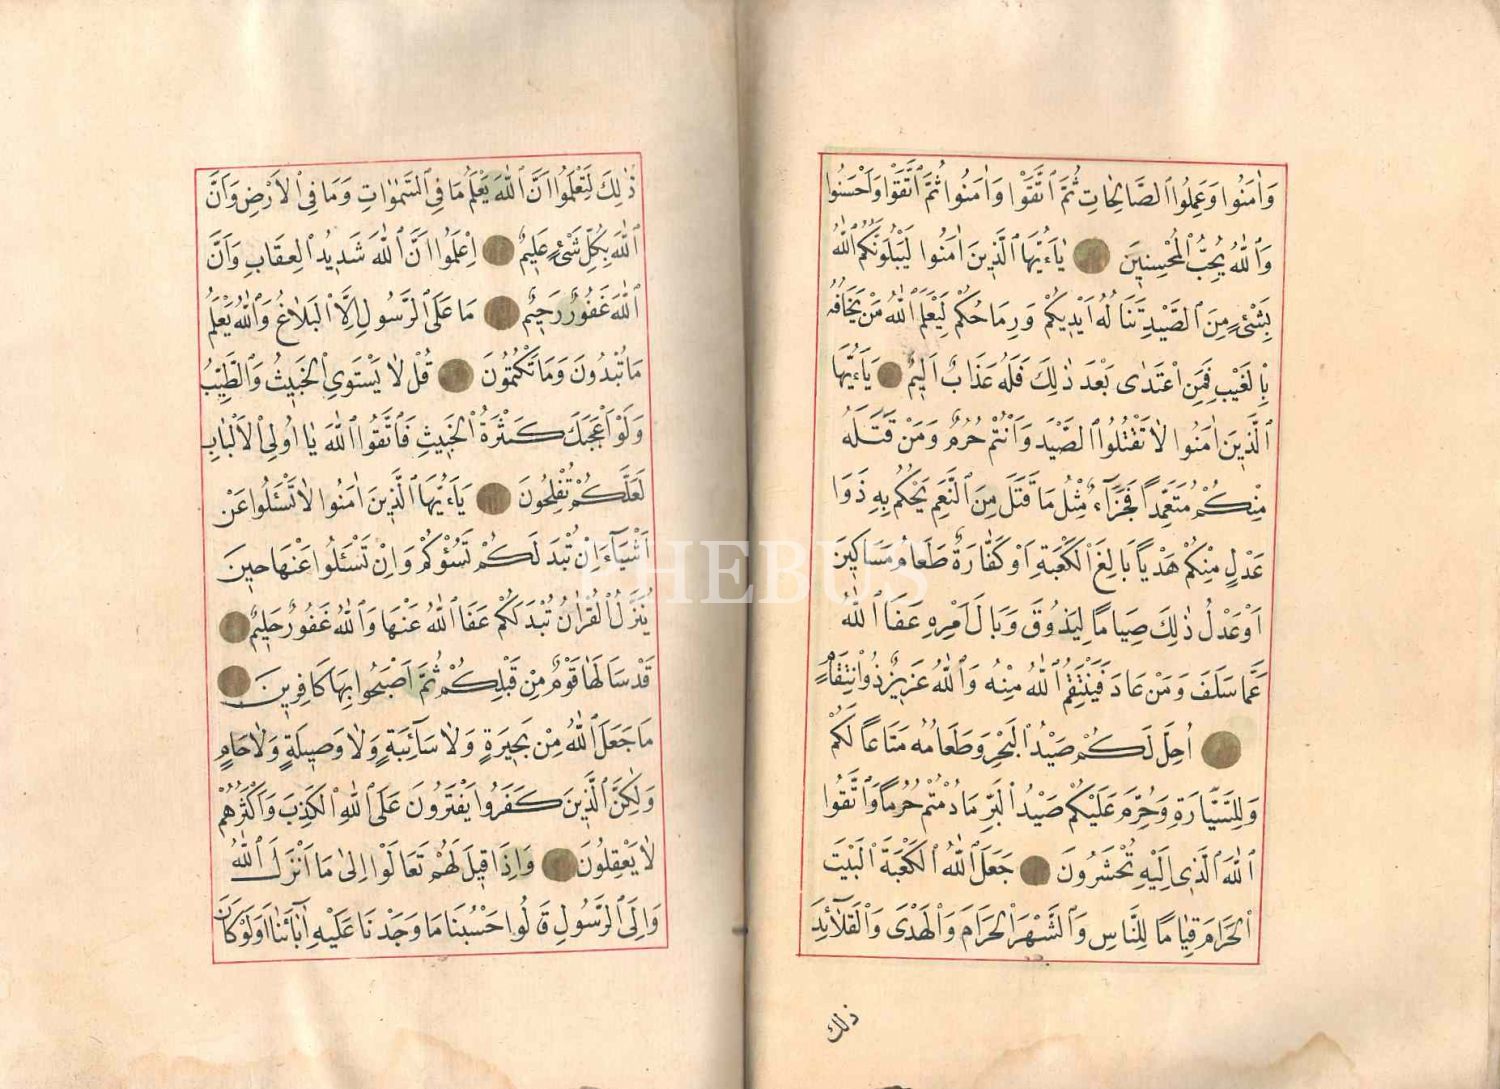 وَاٰمَنُوا وَعَمِلُوا الصَّالِحَاتِ ثُمَّ اتَّقَوْا وَاٰمَنُوا ثُمَّ اتَّقَوْا وَاَحْسَنُوا
وَاللّٰهُ يُحِبُّ الْمُحْسِنِينَ يَٓا اَيُّهَا الَّذِينَ اٰمَنُوا لَيَبْلُوَنَّكُمُ اللّٰهُ
بِشَيْءٍ مِنَ الصَّيْدِ تَنَالُهُ اَيْدِيكُمْ وَرِمَاحُكُمْ لِيَعْلَمَ اللّٰهُ مَنْ يَخَافُهُ
بِالْغَيْبِ فَمَنِ اعْتَدٰى بَعْدَ ذٰلِكَ فَلَهُ عَذَابٌ اَلِيمٌ يَٓا اَيُّهَا
الَّذِينَ اٰمَنُوا لَا تَقْتُلُوا الصَّيْدَ وَاَنْتُمْ حُرُمٌ وَمَنْ قَتَلَهُ
مِنْكُمْ مُتَعَمِّدًا فَجَزَٓاءٌ مِثْلُ مَا قَتَلَ مِنَ النَّعَمِ يَحْكُمُ بِهِ ذَوَا
عَدْلٍ مِنْكُمْ هَدْيًا بَالِغَ الْكَعْبَةِ اَوْ كَفَّارَةٌ طَعَامُ مَسَاكِينَ
اَوْ عَدْلُ ذٰلِكَ صِيَامًا لِيَذُوقَ وَبَالَ اَمْرِهِ عَفَا اللّٰهُ
عَمَّا سَلَفَ وَمَنْ عَادَ فَيَنْتَقِمُ اللّٰهُ مِنْهُ وَاللّٰهُ عَزِيزٌ ذُو انْتِقَامٍ
اُحِلَّ لَكُمْ صَيْدُ الْبَحْرِ وَطَعَامُهُ مَتَاعًا لَكُمْ
وَلِلسَّيَّارَةِ وَحُرِّمَ عَلَيْكُمْ صَيْدُ الْبَرِّ مَا دُمْتُمْ حُرُمًا وَاتَّقُوا
اللّٰهَ الَّذِٓي اِلَيْهِ تُحْشَرُونَ جَعَلَ اللّٰهُ الْكَعْبَةَ الْبَيْتَ
الْحَرَامَ قِيَامًا لِلنَّاسِ وَالشَّهْرَ الْحَرَامَ وَالْهَدْيَ وَالْقَلَٓائِدَ
ذلك
ذٰلِكَ لِتَعْلَمُوا اَنَّ اللّٰهَ يَعْلَمُ مَا فِي السَّمٰوَاتِ وَمَا فِي الْاَرْضِ وَاَنَّ
اللّٰهَ بِكُلِّ شَيْءٍ عَلِيمٌ اِعْلَمُوا اَنَّ اللّٰهَ شَدِيدُ الْعِقَابِ وَاَنَّ
اللّٰهَ غَفُورٌ رَحِيمٌ مَا عَلَى الرَّسُولِ اِلَّا الْبَلَاغُ وَاللّٰهُ يَعْلَمُ
مَا تُبْدُونَ وَمَا تَكْتُمُونَ قُلْ لَا يَسْتَوِي الْخَبِيثُ وَالطَّيِّبُ
وَلَوْ اَعْجَبَكَ كَثْرَةُ الْخَبِيثِ فَاتَّقُوا اللّٰهَ يَا اُولِي الْاَلْبَابِ
لَعَلَّكُمْ تُفْلِحُونَ يَٓا اَيُّهَا الَّذِينَ اٰمَنُوا لَا تَسْئَلُوا عَنْ
اَشْيَٓاءَ اِنْ تُبْدَ لَكُمْ تَسُؤْكُمْ وَاِنْ تَسْئَلُوا عَنْهَا حِينَ
يُنَزَّلُ الْقُرْاٰنُ تُبْدَ لَكُمْ عَفَا اللّٰهُ عَنْهَا وَاللّٰهُ غَفُورٌ حَلِيمٌ
قَدْ سَاَلَهَا قَوْمٌ مِنْ قَبْلِكُمْ ثُمَّ اَصْبَحُوا بِهَا كَافِرِينَ
مَا جَعَلَ اللّٰهُ مِنْ بَحِيرَةٍ وَلَا سَٓائِبَةٍ وَلَا وَصِيلَةٍ وَلَا حَامٍ
وَلٰكِنَّ الَّذِينَ كَفَرُوا يَفْتَرُونَ عَلَى اللّٰهِ الْكَذِبَ وَاَكْثَرُهُمْ
لَا يَعْقِلُونَ وَاِذَا قِيلَ لَهُمْ تَعَالَوْا اِلٰى مَا اَنْزَلَ اللّٰهُ
وَاِلَى الرَّسُولِ قَالُوا حَسْبُنَا مَا وَجَدْنَا عَلَيْهِ اٰبَٓاءَنَا اَوَلَوْ كَانَ
PHEBUS